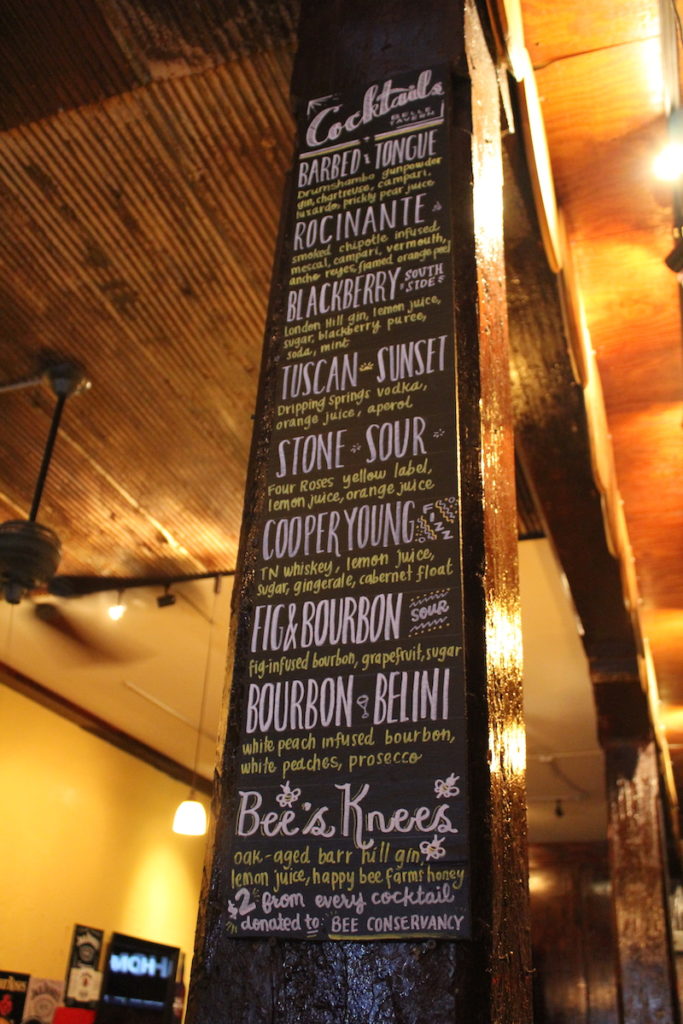 Cocktails
BELLE
TAVERN
BARBED TONGUE
Drumshambo gunpowder
gin, chartreuse, campari,
luxardo, prickly pear juice
ROCINANTE
smoked chipotle infused
mescal, campari, vermouth,
ancho reyes, flamed orange peel
BLACKBERRY SOUTH
SIDE
London Hill gin, lemon juice,
sugar, blackberry puree,
soda, mint
TUSCAN SUNSET
Dripping Springs vodka,
orange juice, aperol
STONE SOUR
Four Roses yellow label,
lemon juice, orange juice
COOPER YOUNG FIZZ
TN whiskey, lemon juice,
sugar, gingerale, cabernet float
FIG & BOURBON SOUR
fig-infused bourbon, grapefruit, sugar
BOURBON BELINI
white peach infused bourbon,
white peaches, prosecco
Bee's Knees
oak-aged barr hill gin,
lemon juice, happy bee farms honey
$2 from every cocktail
donated to: BEE CONSERVANCY